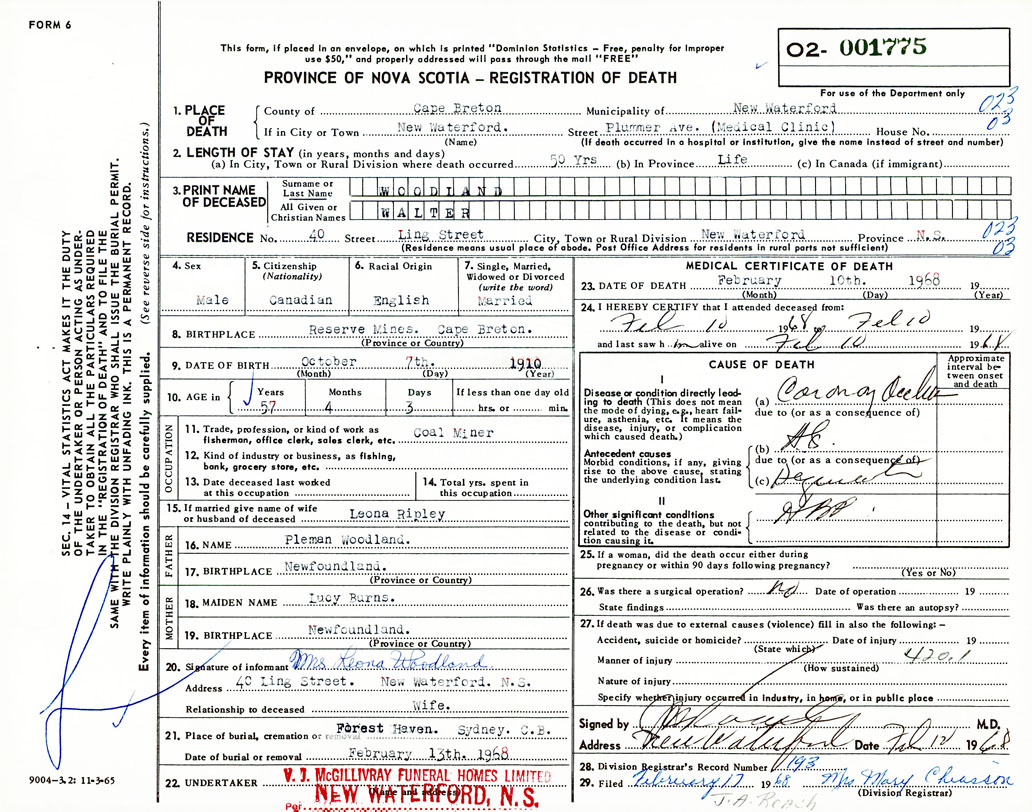 FORM 6
This form, if placed in an envelope, on which is printed "Dominion Statistics – Free, penalty for Improper
use $50," and properly addressed will pass through the mail "FREE"
PROVINCE OF NOVA SCOTIA – REGISTRATION OF DEATH
02- 001775
For use of the Department only
023
03
1. PLACE OF DEATH
County of Cape Breton Municipality of New Waterford
If in City or Town New Waterford. Street Plummer Ave. (Medical Clinic) House No.
(Name) (If death occurred in a hospital or institution, give the name instead of street and number)
2. LENGTH OF STAY (in years, months and days)
(a) In City, Town or Rural Division where death occurred 50 Yrs (b) In Province Life (c) In Canada (if immigrant)
3. PRINT NAME OF DECEASED
Surname or Last Name WOODLAND
All Given or Christian Names WALTER
RESIDENCE No. 40 Street Ling Street City, Town or Rural Division New Waterford Province N.S.
(Residence means usual place of abode. Post Office Address for residents in rural parts not sufficient)
023
03
4. Sex
Male
5. Citizenship (Nationality)
Canadian
6. Racial Origin
English
7. Single, Married, Widowed or Divorced (write the word)
Married
8. BIRTHPLACE Reserve Mines. Cape Breton.
(Province or Country)
9. DATE OF BIRTH October 7th. 1910
(Month) (Day) (Year)
10. AGE in Years Months Days If less than one day old
57 4 3 hrs. or min.
OCCUPATION
11. Trade, profession, or kind of work as Coal Miner
fisherman, office clerk, sales clerk, etc.
12. Kind of industry or business, as fishing,
bank, grocery store, etc.
13. Date deceased last worked
at this occupation
14. Total yrs. spent in
this occupation
15. If married give name of wife
or husband of deceased Leona Ripley
FATHER
16. NAME Pleman Woodland.
17. BIRTHPLACE Newfoundland.
(Province or Country)
MOTHER
18. MAIDEN NAME Lucy Burns.
19. BIRTHPLACE Newfoundland.
(Province or Country)
20. Signature of informant Mrs Leona Woodland
Address 40 Ling Street. New Waterford. N.S.
Relationship to deceased Wife.
21. Place of burial, cremation or removal Forest Haven. Sydney. C.B.
Date of burial or removal February 13th. 1968
22. UNDERTAKER V. J. McGILLIVRAY FUNERAL HOMES LIMITED
(Name and address)
NEW WATERFORD, N. S.
Per
MEDICAL CERTIFICATE OF DEATH
23. DATE OF DEATH February 10th. 1968 19
(Month) (Day) (Year)
24. I HEREBY CERTIFY that I attended deceased from:
Feb 10 1968 to Feb 10 19
and last saw him alive on Feb 10 1968
CAUSE OF DEATH
Approximate interval between onset and death
I
Disease or condition directly leading to death (This does not mean the mode of dying, e.g., heart failure, asthenia, etc. It means the disease, injury, or complication which caused death.)
(a) Coronary
due to (or as a consequence of)
Antecedent causes
Morbid conditions, if any, giving rise to the above cause, stating the underlying condition last.
(b)
due to (or as a consequence of)
(c)
II
Other significant conditions
contributing to the death, but not related to the disease or condition causing it.
25. If a woman, did the death occur either during
pregnancy or within 90 days following pregnancy?
(Yes or No)
26. Was there a surgical operation? no Date of operation 19
State findings Was there an autopsy?
27. If death was due to external causes (violence) fill in also the following: –
Accident, suicide or homicide? Date of injury 19
(State which)
Manner of injury 420.1
(How sustained)
Nature of injury
Specify whether injury occurred in Industry, in home, or in public place
Signed by M.D.
Address New Waterford Date Feb 12 1968
28. Division Registrar's Record Number 193
29. Filed February 17 1968 Mrs Mary Chiasson
(Division Registrar)
J.A. Roach
SEC. 14 – VITAL STATISTICS ACT MAKES IT THE DUTY
OF THE UNDERTAKER OR PERSON ACTING AS UNDER-
TAKER TO OBTAIN ALL THE PARTICULARS REQUIRED
IN THE "REGISTRATION OF DEATH" AND TO FILE THE
SAME WITH THE DIVISION REGISTRAR WHO SHALL ISSUE THE BURIAL PERMIT.
WRITE PLAINLY WITH UNFADING INK. THIS IS A PERMANENT RECORD.
Every item of information should be carefully supplied. (See reverse side for instructions.)
9004-3.2: 11-3-65